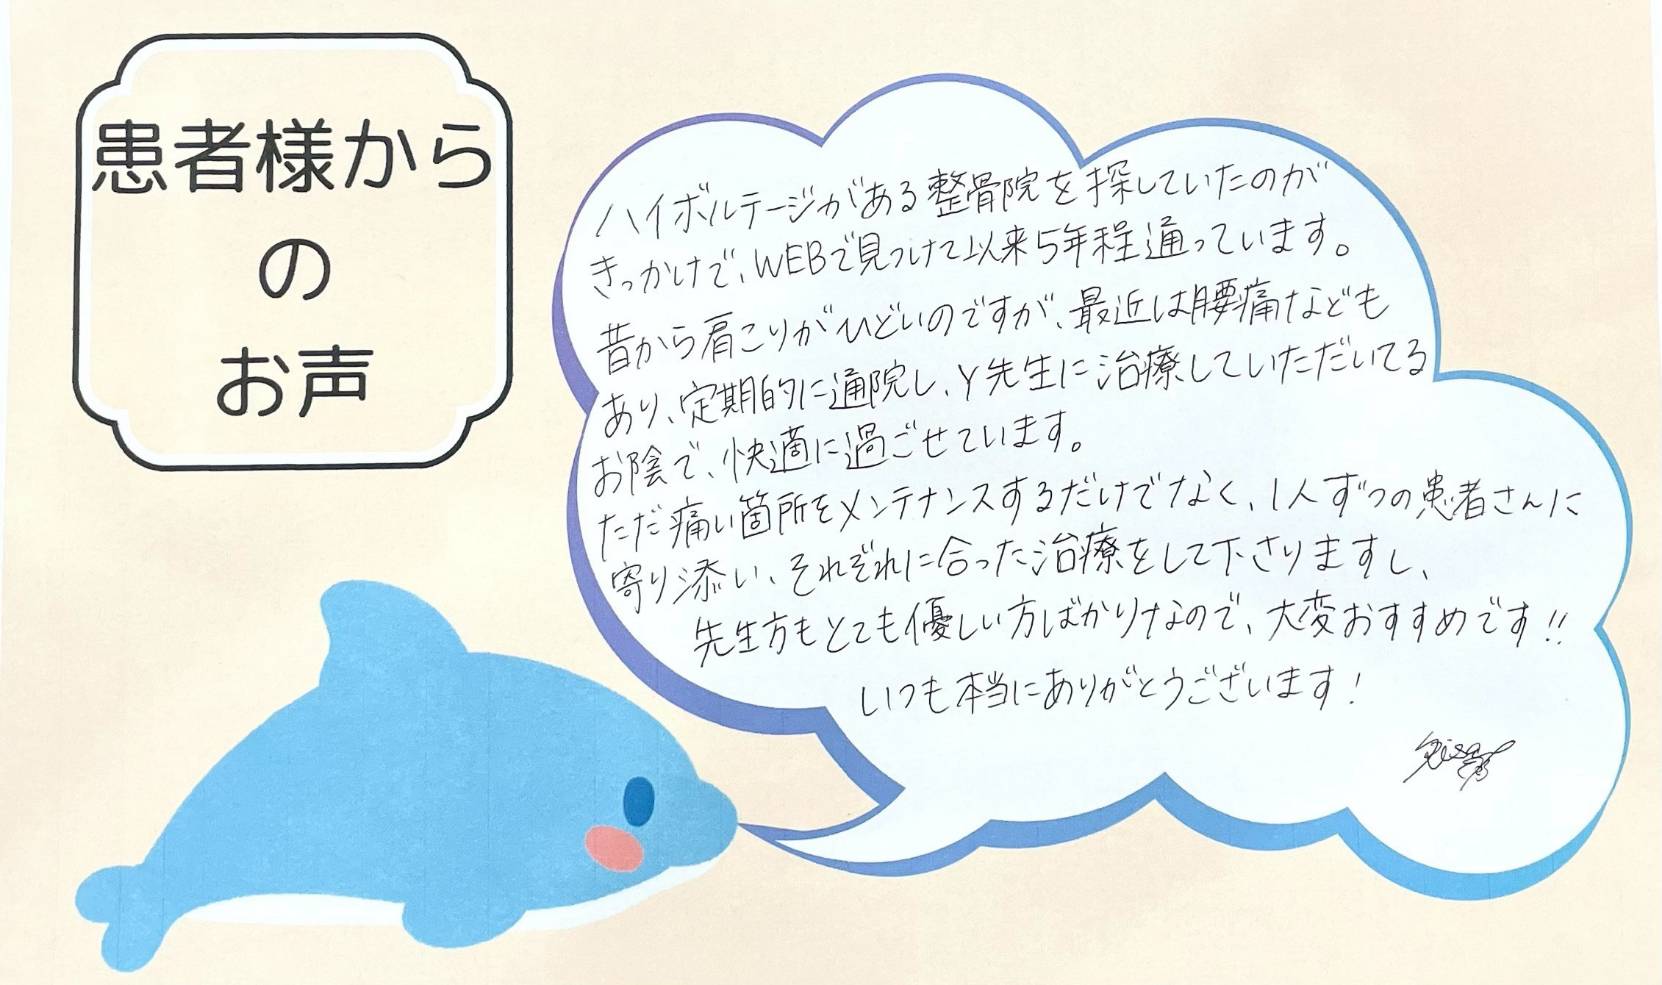 患者様から
の
お声
ハイボルテージがある整骨院を探していたのが
きっかけで、WEBで見つけて以来5年程通っています。
昔から肩こりがひどいのですが、最近は腰痛なども
あり、定期的に通院し、Y先生に治療していただいてる
お陰で、快適に過ごせています。
ただ痛い箇所をメンテナンスするだけでなく、1人ずつの患者さんに
寄り添い、それぞれに合った治療をして下さりますし、
先生方もとても優しい方ばかりなので、大変おすすめです!!
いつも本当にありがとうございます!